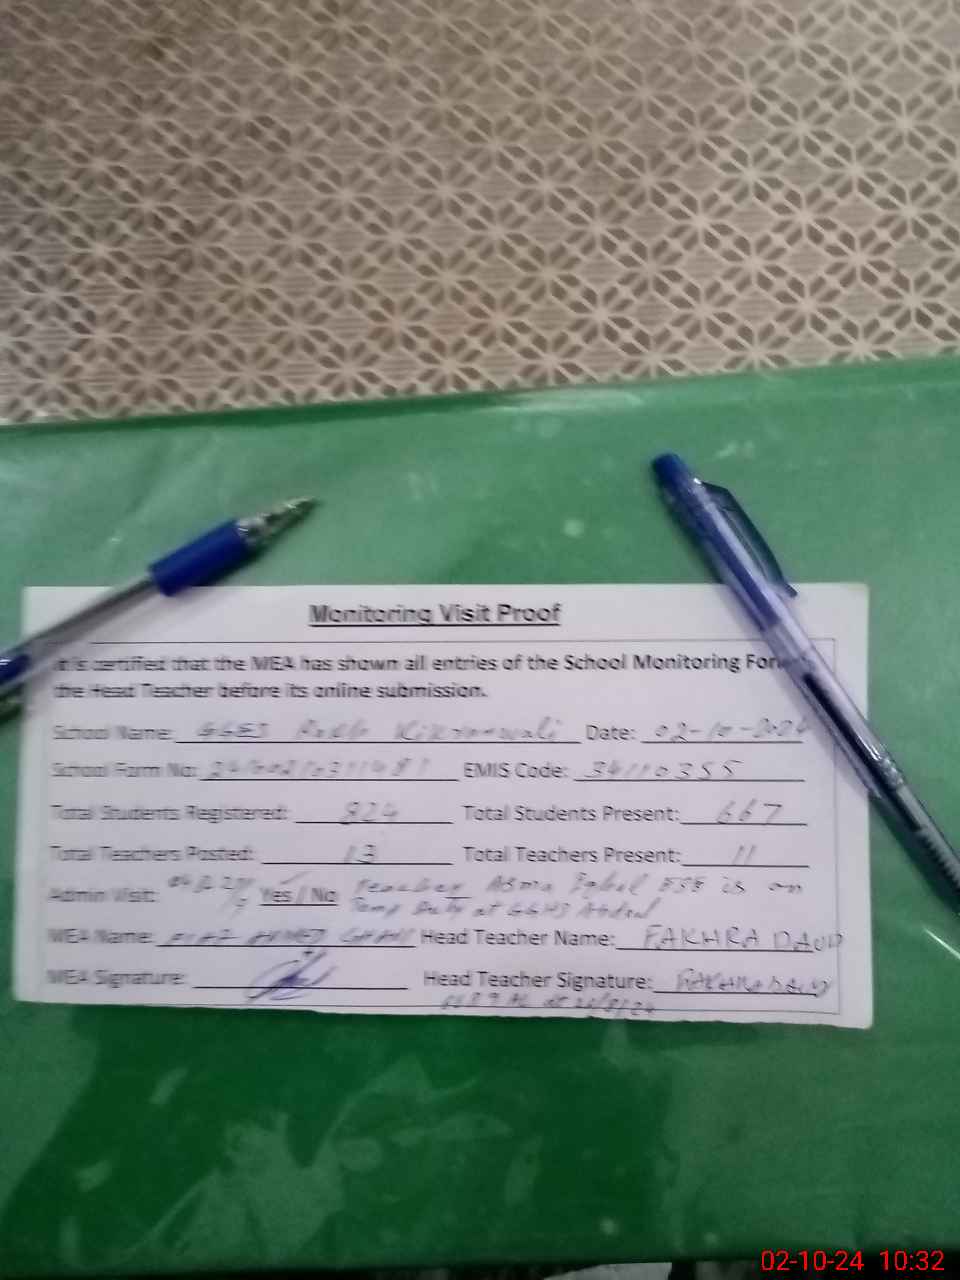 Monitoring Visit Proof
It is certified that the MEA has shown all entries of the School Monitoring Form
the Head Teacher before its online submission.
School Name: GGES Date: 02-10-2024
School Form No: EMIS Code: 34110355
Total Students Registered: 824 Total Students Present: 667
Total Teachers Posted: 13 Total Teachers Present: 11
Admin Visit: Yes / No Teacher Asma Iqbal ESE is on
Temp Duty at GGHS
MEA Name: AHMED Head Teacher Name: FAKHRA DAUD
MEA Signature: Head Teacher Signature: FAKHRA DAUD
02-10-24 10:32